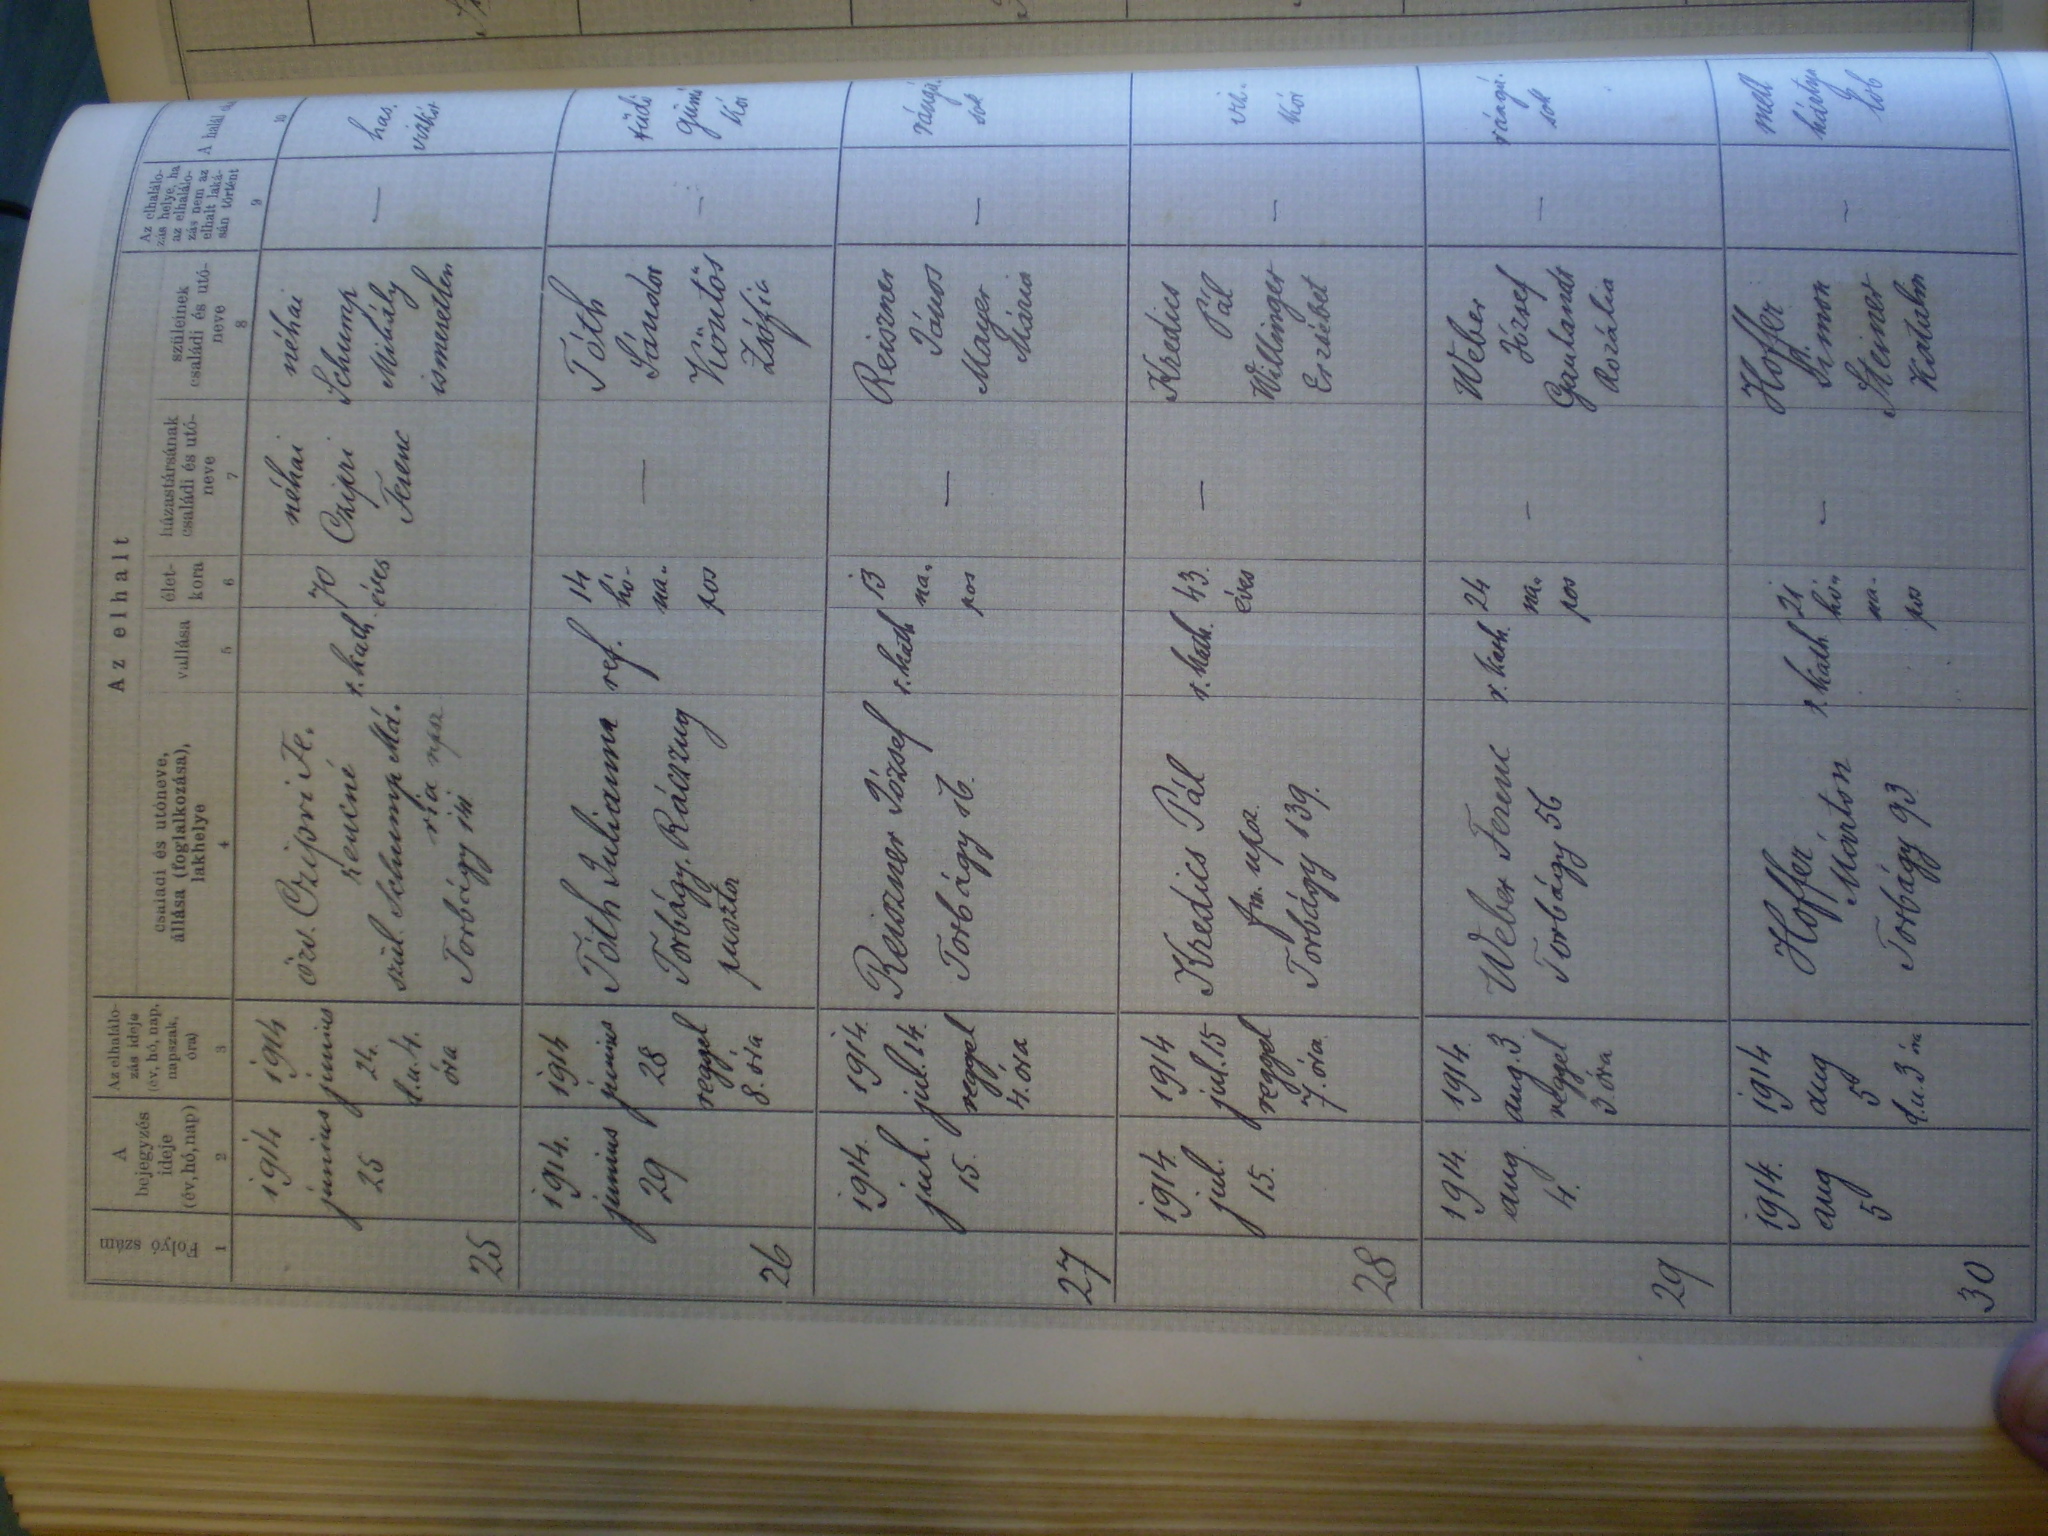 Az elhalt
Folyó szám
A bejegyzés ideje (év, hó, nap)
Az elhalálozás ideje (év, hó, nap, napszak, óra)
családi és utóneve, állása (foglalkozása), lakhelye
vallása
életkora
házastársának családi és utóneve
szüleinek családi és utóneve
Az elhalálozás helye, ha az elhalálozás nem az elhalt lakásán történt
A halál
1
2
3
4
5
6
7
8
9
10
25
1914
junius
25
1914
junius
24.
d.u. 4.
óra
özv. Czipri Fe.
rencné
szül. Schump Má.
ria npsz
Torbágy
r. kath.
70
éves
néhai
Czipri
Ferenc
néhai
Schump
Mihály
ismeretlen
—
has.
26
1914.
junius
29
1914
junius
28
reggel
8. óra
Tóth Julianna
Torbágy. Ráczzug
puszta
ref.
14
hó-
na.
pos
—
Tóth
Sándor
Köntös
Zsófia
—
tüdő
gümő
kór
27
1914.
jul.
15.
1914.
jul. 14.
reggel
4. óra
Reiszner József
Torbágy 16.
r. kath
13
na.
pos
—
Reiszner
János
Mayer
Mária
—
rángá.
sok
28
1914
jul.
15.
1914
jul. 15
reggel
7. óra
Kredics Pál
fm. npsz.
Torbágy 139.
r. kath.
43.
éves
—
Kredics
Pál
Willinger
Erzsébet
—
kór
29
1914.
aug.
4.
1914.
aug. 3
reggel
3. óra
Weber Ferenc
Torbágy 56
r. kath.
24
na.
pos
—
Weber
József
Rozália
—
rángá.
sok
30
1914.
aug
5
1914
aug
5
d.u. 3 óra
Hoffer
Márton
Torbágy 93
r. kath
21
hó.
na.
pos
—
Hoffer
Simon
Steiner
Katalin
—
mell
hártya
lob